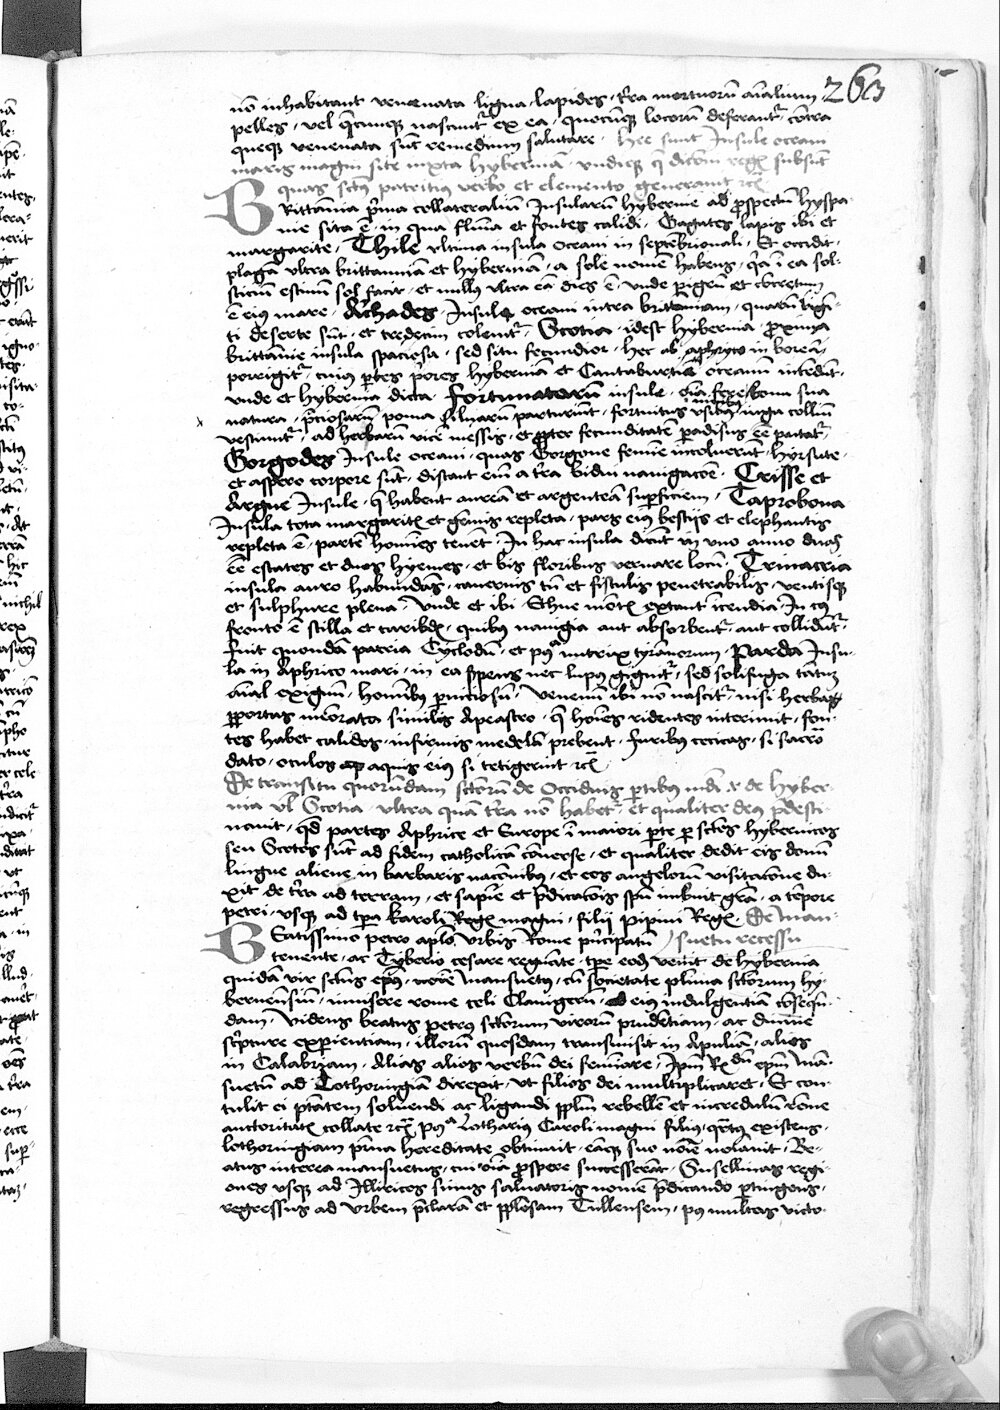 263
nō inhabitant venenata ligna, lapides, t̄ra mortuorū aīalium
pelles, vel q̄cumqꝫ nascunt᷑ ex ea, quocūqꝫ locorū deferant᷑, cōtra
queqꝫ venenata sūt remedium salutare. Hec sunt Insule oceani
maris magni site iuxta hyberniā, vndiqꝫ q̄ dicōni regꝭ subsūt
quas sctūs patritius verbo et elemento generauit ꝛcꝭ
BRittānia p̄ma collateraliū Insularum hybernie ad ꝓspectū hyspa
nie sita ē, in qua flūia et fontes calidi, Gagates lapis ibi et
margarite, Thile vltima insula oceani in septētrionali, Et occidēt.
plagā vltra brittanniā et hyberniā, a sole nomē habens, q̄a ī ea sol-
sticiū estiuū sol facit, et null9 vltra eā dies ē, vnde pigrū et cōcretum
ē eius mare. Archades Insule oceani intra britaniam, quarū vigī-
ti deserte sūt, et tredecim colunt᷑, Scotia, idest hybernia ꝓxima
brittānie insula spaciosa, sed situ fecundior, hec ab aphryco in boreā
porrigit᷑, cuius p̄tes p̄ores hyberniā et Cantabricū oceanū intēdūt,
vnde et hybernia dicta. fortunatarū insule, oīa fere bona sua
natura, p̄ciosarū poma siluarū parturiūt, fortuitis vitib9 iuga colliū
vestiunt᷑, ad herbarū vicē messis, et ꝓpter fecunditatē padisus eē putat᷑,
Gorgodes Insule oceani, quas Gorgone femīe incoluerūt, hyrsute,
et aspero corpore sūt, distant em̄ a t̄ra bidui nauigacōe. Crisse et
Argire Insule, q̄ habent aureā et argenteā supficiem, Taprobona
Insula tota margaritꝭ et gēmis repleta, pars ei9 bestijs et elephantis
repleta ē, partē homīes tenēt. In hac insula dicūt in vno anno duas
eē estates et duos hyemes, et bis floribus vernare locū. Trinacria
insula auro habundās, cauernis tn̄ et fistulis penetrabilis, ventisqꝫ
et sulphure plena. vnde et ibi Ethne mōtꝭ extant īcendia, In cui9
fronto ē scilla et caribdꝭ, quibus nauigia aut absorbent᷑, aut colliduͣt᷑,
fuit quondā patria Cyclopū, et post nutrix tyrānorum, Sarda Insu-
la in Aphrico mari, in ea serpens nec lupus gignit᷑, sed solifuga tantum
aīal exiguū, homībus pniciosū, venenū ibi nō nascit᷑, nisi herba
similis Apeastro, q̄ hoīes ridentes interimit, fon-
tes habet calidos, infirmis medelā prebent, furibus cecitas, si sacrō
dato, oculos aquis eius si tetigerint ꝛcꝭ.
De transitu quorundam sctōrū de Occiduis ptibus mūdi ꝛ de hyber-
nia vl̄ Scotia, vltra quā t̄ra nō habet᷑, et qualiter deus p̄desti-
nauit, qd̄ partes Aphrice et Europe ī maiori pte p sctōs hybernicos
seu Scotos sūt ad fidem catholicā cōuerse, et qualiter dedit eis donū
lingue aliene in barbaris nacōnibus, et eos angelorū visitacōne du-
xit de t̄ra ad terram, et sapīe et p̄dicacōis spū imbuit grā, a tēpore
petri, vsqꝫ ad tpa karoli Regꝭ magni, filij pipini Regꝭ. De Man-
BEatissimo petro aplō vrbis Rome p̄ncipatū / sueti recessu
tenente, ac Tyberio cesare regnāte, tpe eod̄ venit de hybernia
quidā vir sctūs epūs, noīe Mansuetus, cū societate plīma sctōrum hy-
berniēsiū, inuisere rome celi Clauigerū, ad eius indulgentiā cōsequē-
dam, videns beatus petrus sctōrum virorū prudētiam, ac diuine
sc̄pture experientiam, illorū quosdam transmisit in Apuliā, alios
in Calabriam, Alias alios verbū dei semīare, Ipm̄ Rdū epm̄ Mā-
suetū ad Lothoringiā direxit, vt filios dei multiplicaret, Et con-
tulit ei ptātem soluendi ac ligandi pplm̄ rebellē et incredulū rōne
auctoritatꝭ collate ꝛcꝭ post Lotharius Caroli magni filius, existens,
lothoringiam p̄ma hereditate obtinuit, eāqꝫ suo noīe noīauit. Be-
atus interea mansuetus, cui oīa ꝓspere successerāt, regi-
ones vsqꝫ ad Illiricos sinus saluatoris nomē p̄dicando ptingens,
regressus ad vrbem p̄clarā et pplōsam Tullensem, post multas victo-